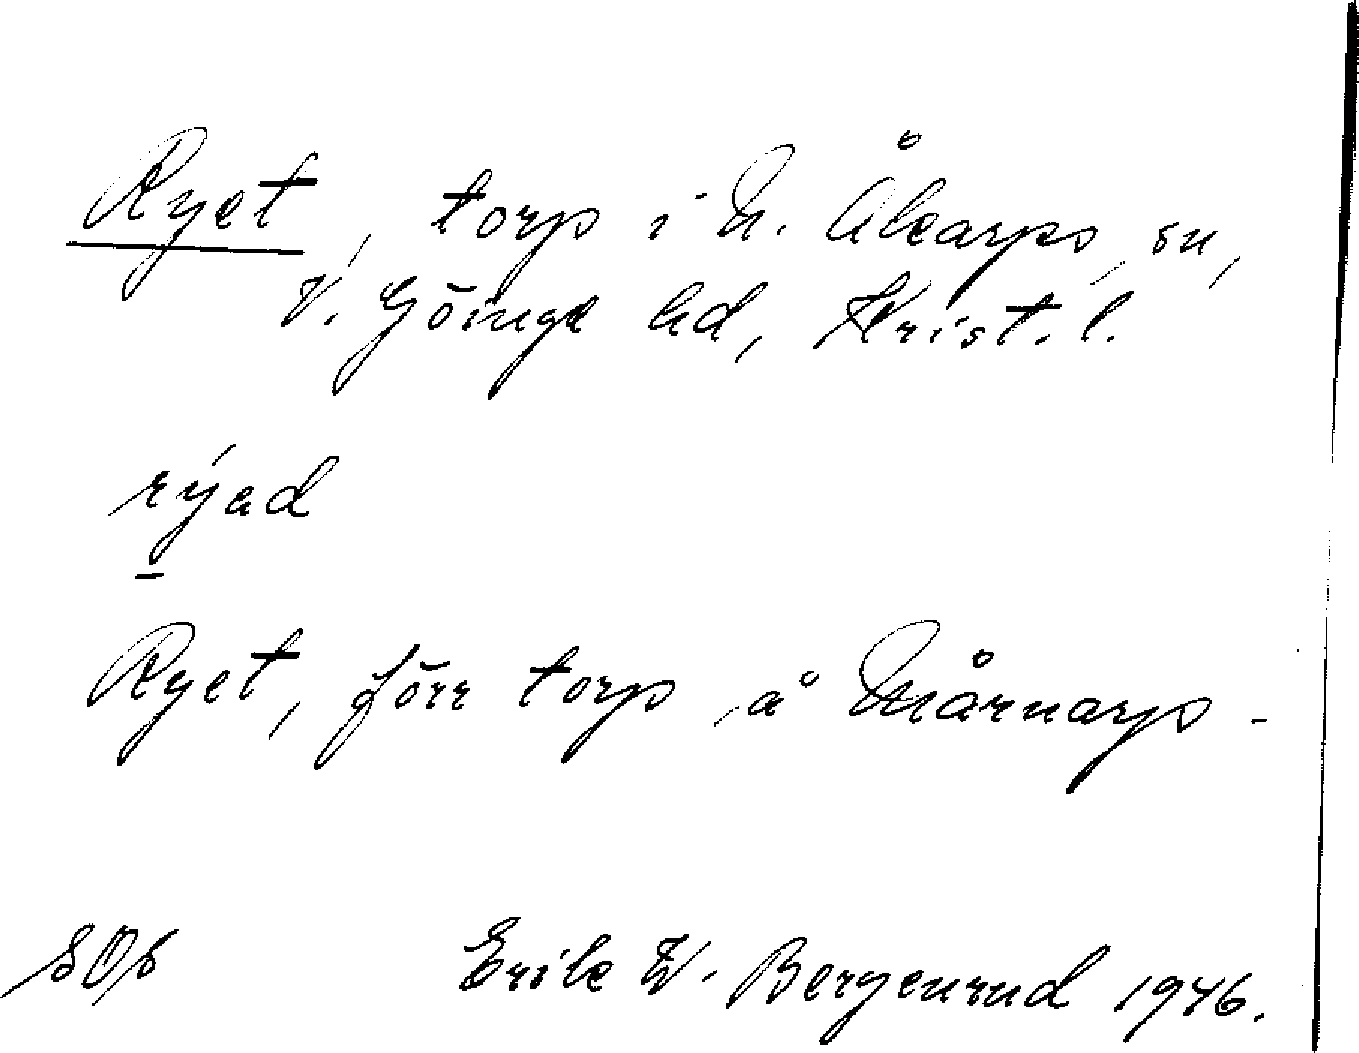 Ryet, torp i N. Åkarps sn,
V. Göinge hd, Krist. l.
rýad
Ryet, förr torp å Mårnarp -
SOS Erik W. Bergenrud 1946.